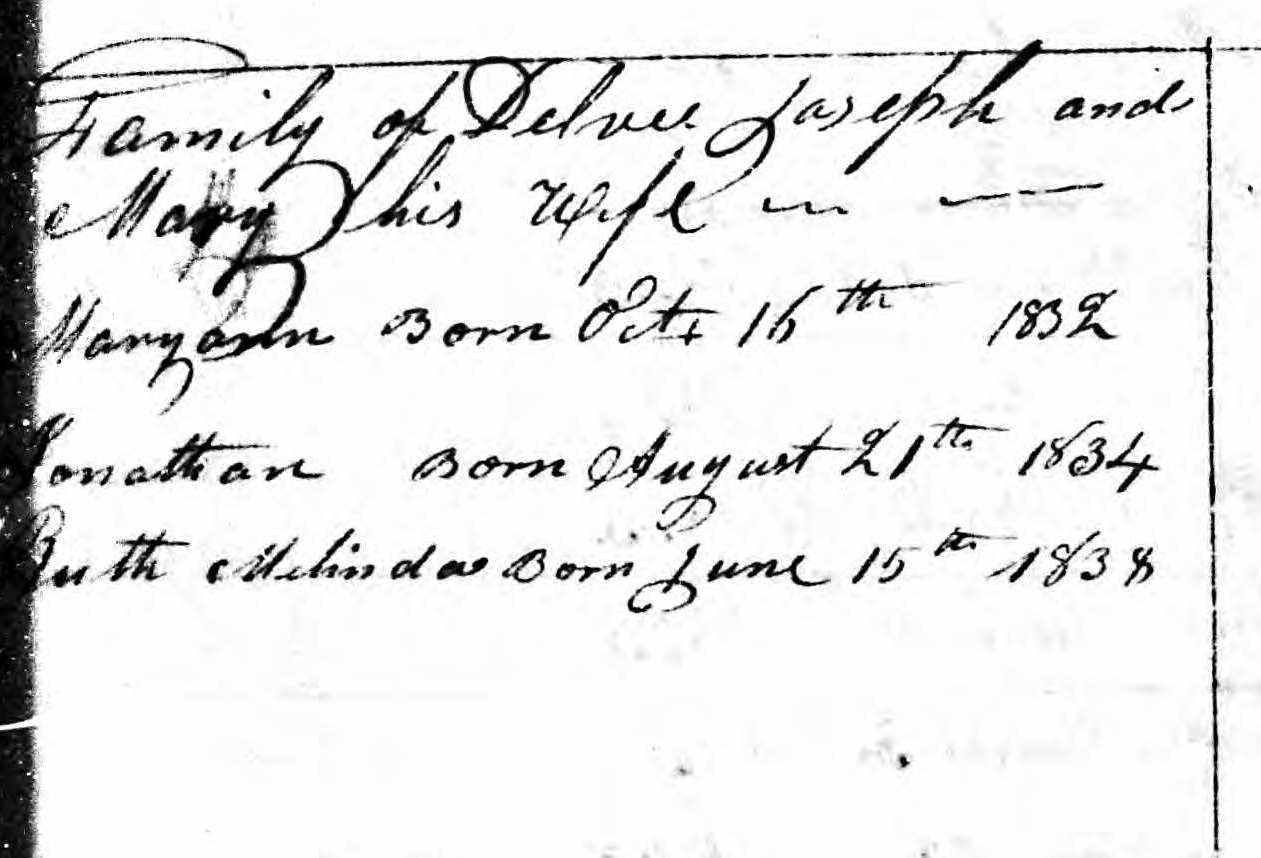 Family of Delvee Joseph and
Mary his Wife
Maryann Born Oct 16th 1832
Jonathan Born August 21th 1834
Ruth Melinda Born June 15th 1838